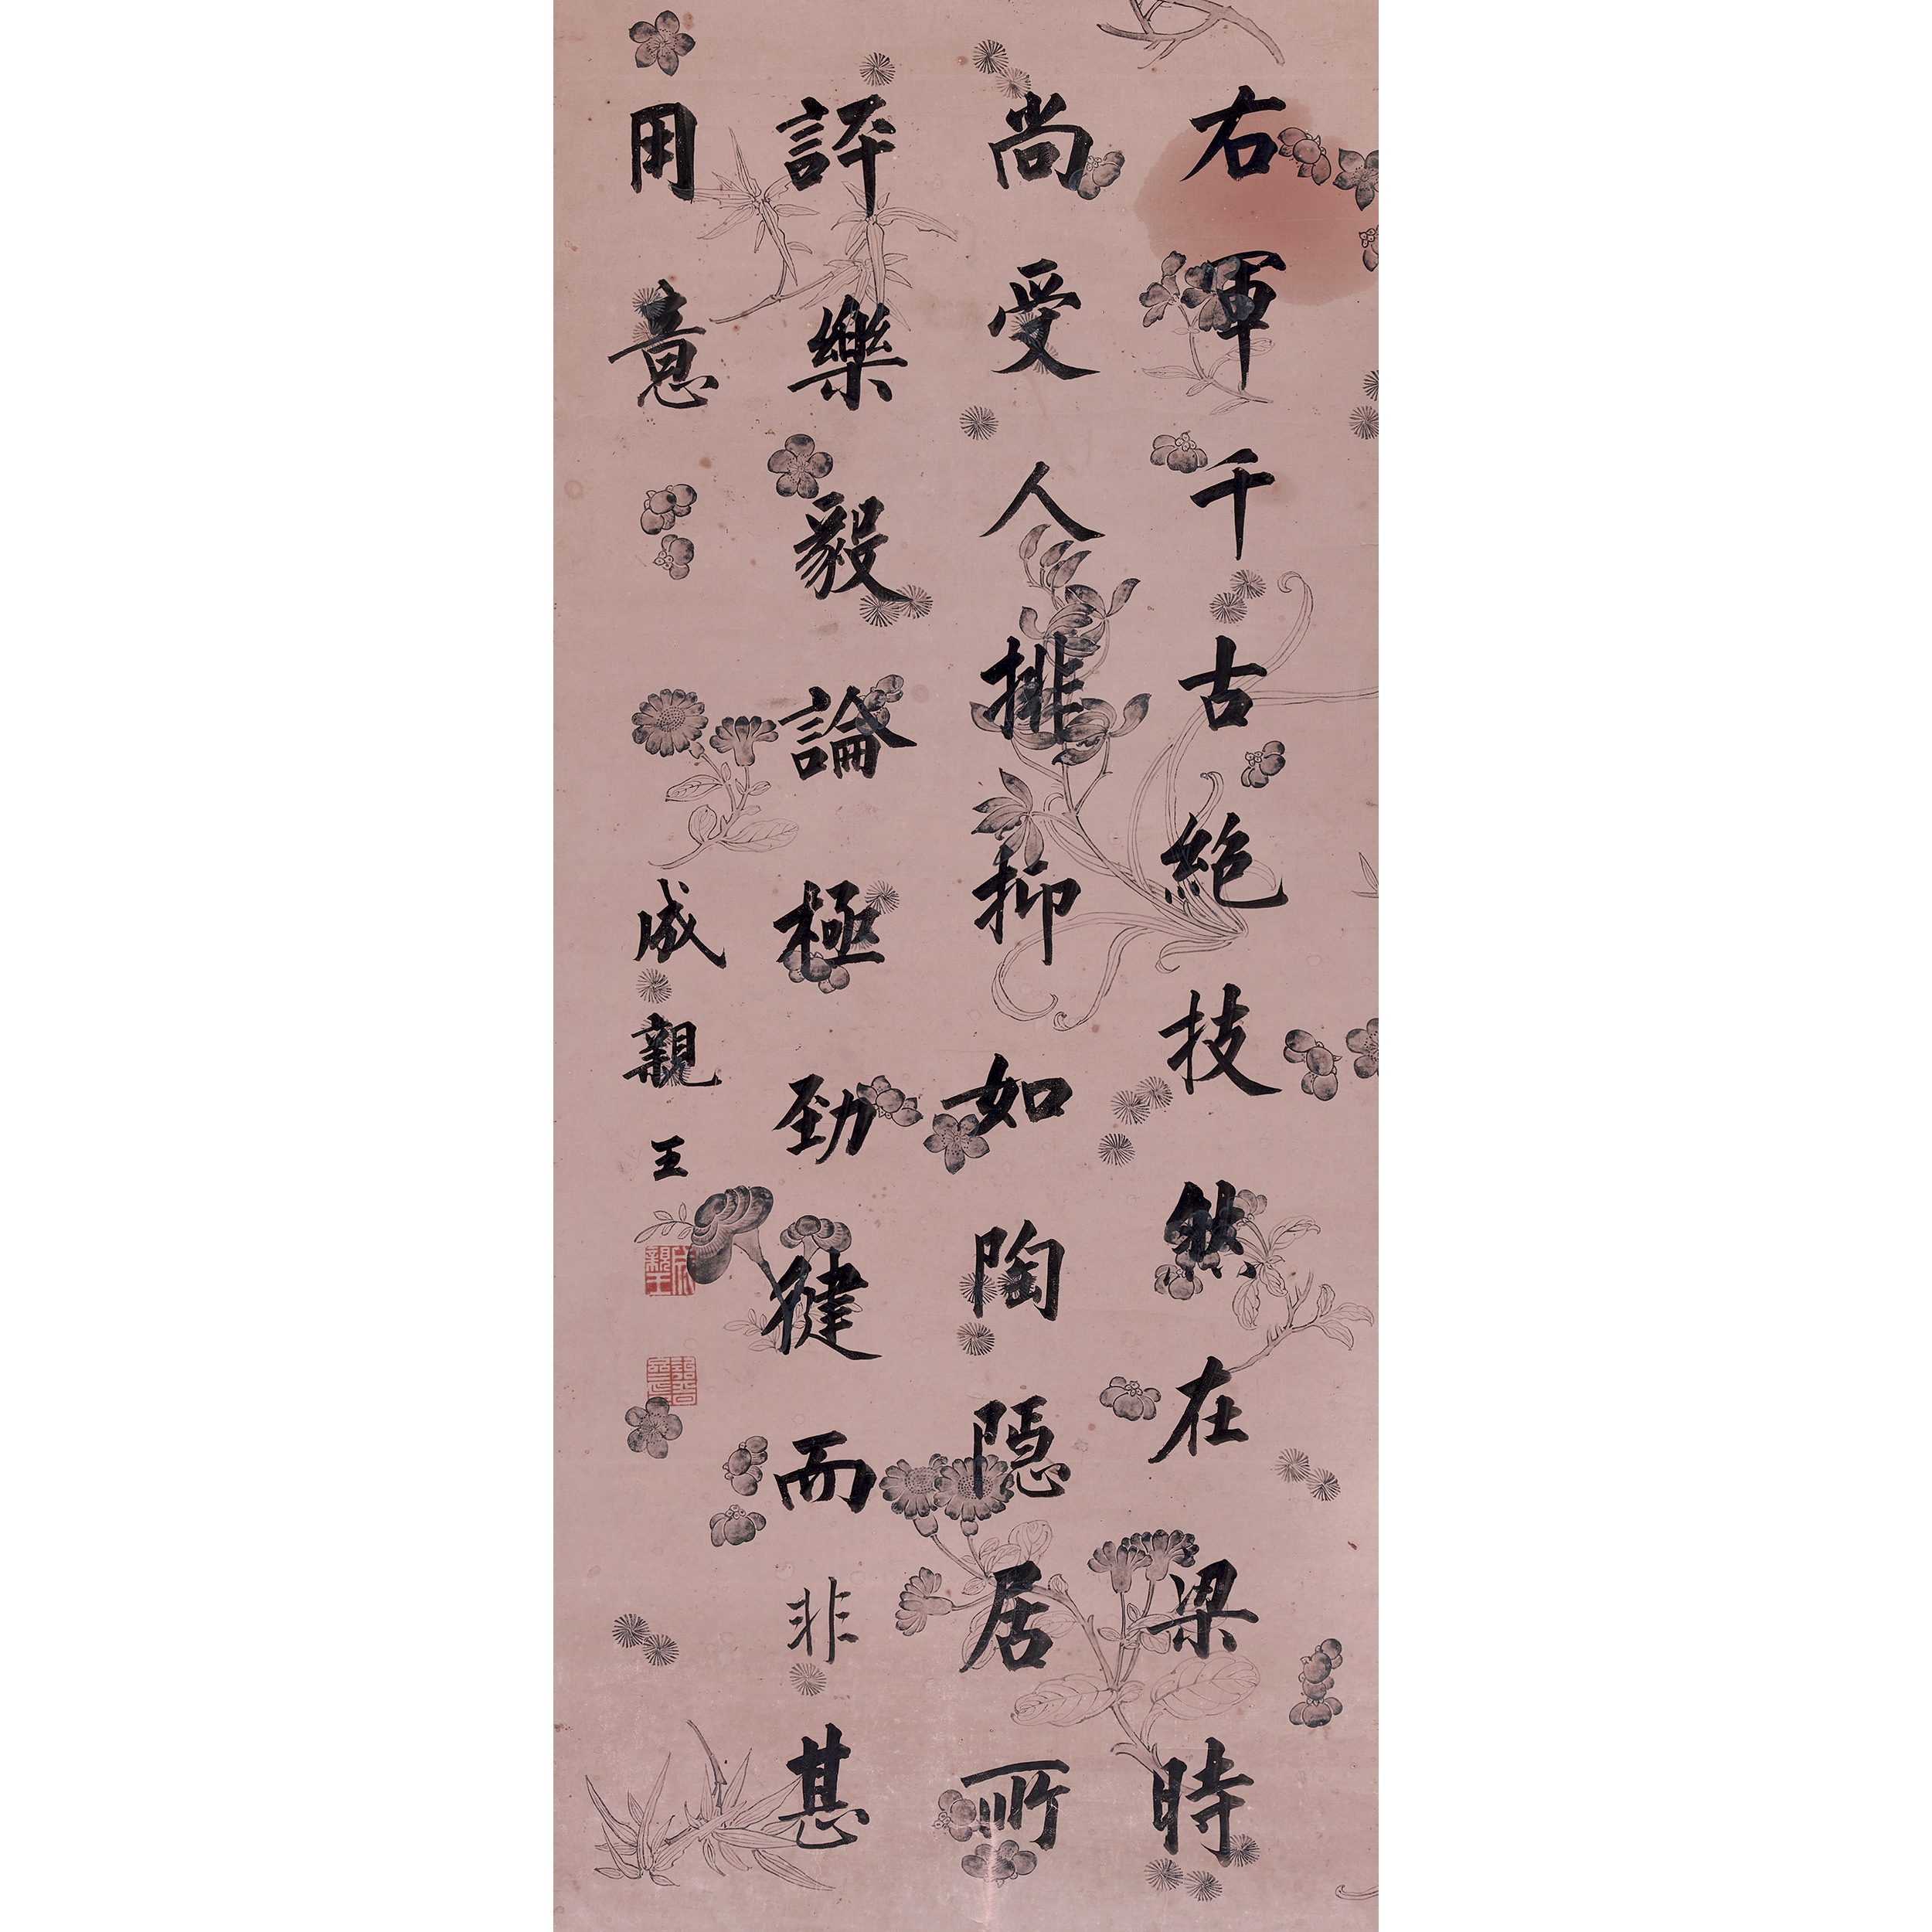 右軍千古絕技然在梁時
尚受人排抑如陶隱居所
評樂毅論極勁健而非甚
用意
成親王
成親王